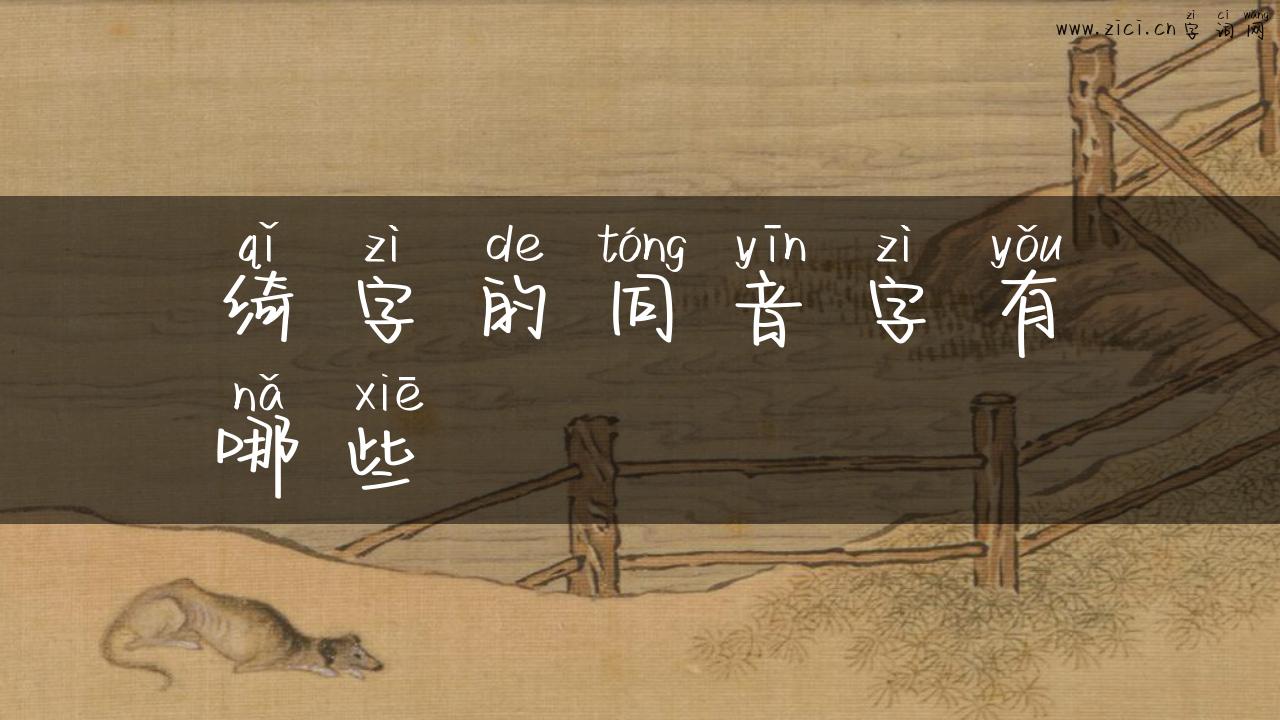 zi ci wang
www.zici.cn 字词网
qǐ zì de tóng yīn zì yǒu
绮字的同音字有
nǎ xiē
哪些